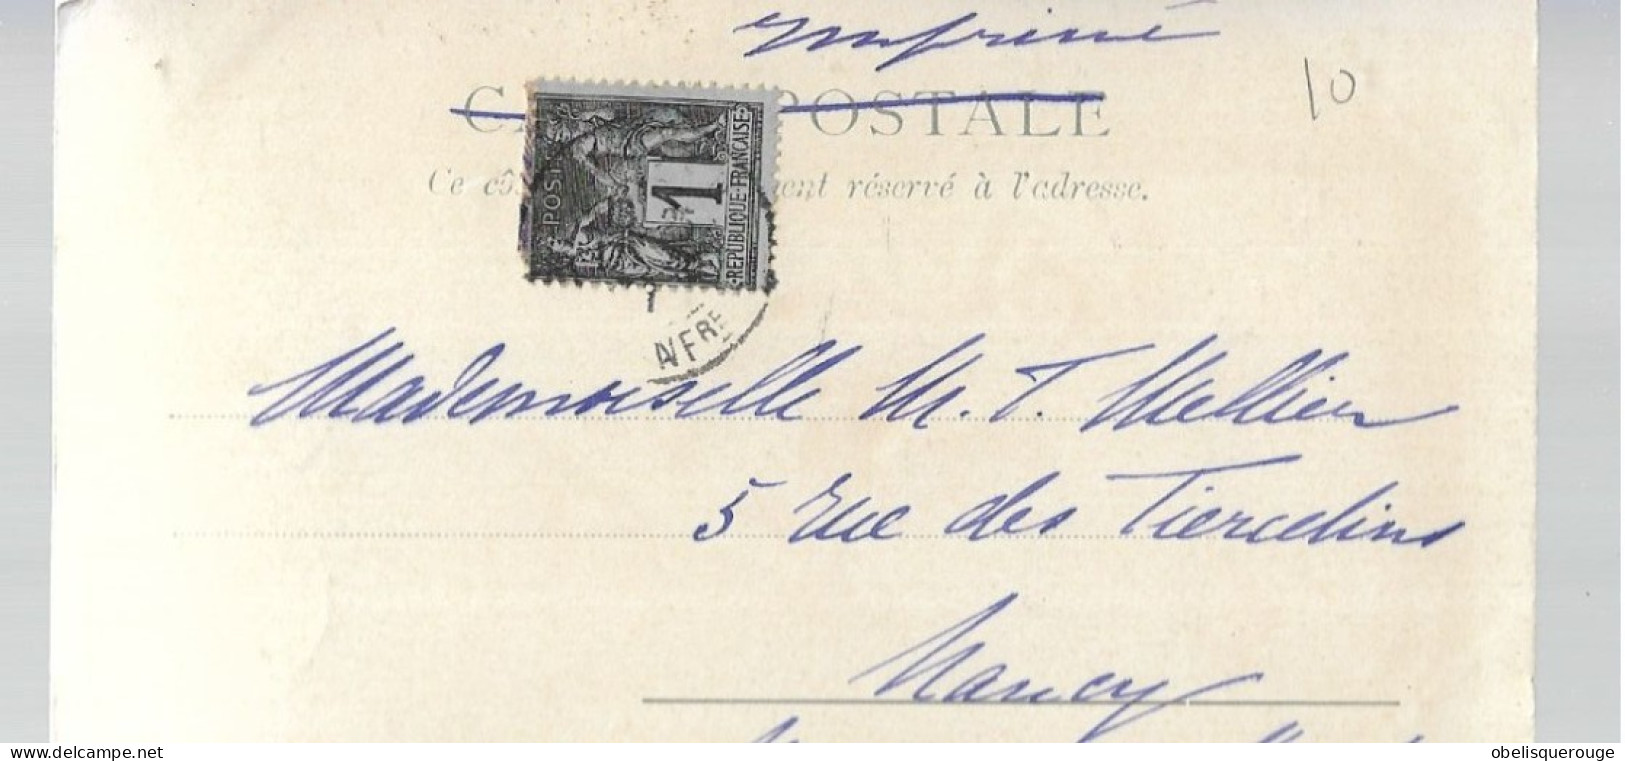 Imprimé
10
POSTALE
Ce réservé à l'adresse.
POSTES
1
REPUBLIQUE FRANÇAISE
Mademoiselle M. T. Mellier
5 rue des Tiercelins
Nancy
www.delcampe.net
obelisquerouge